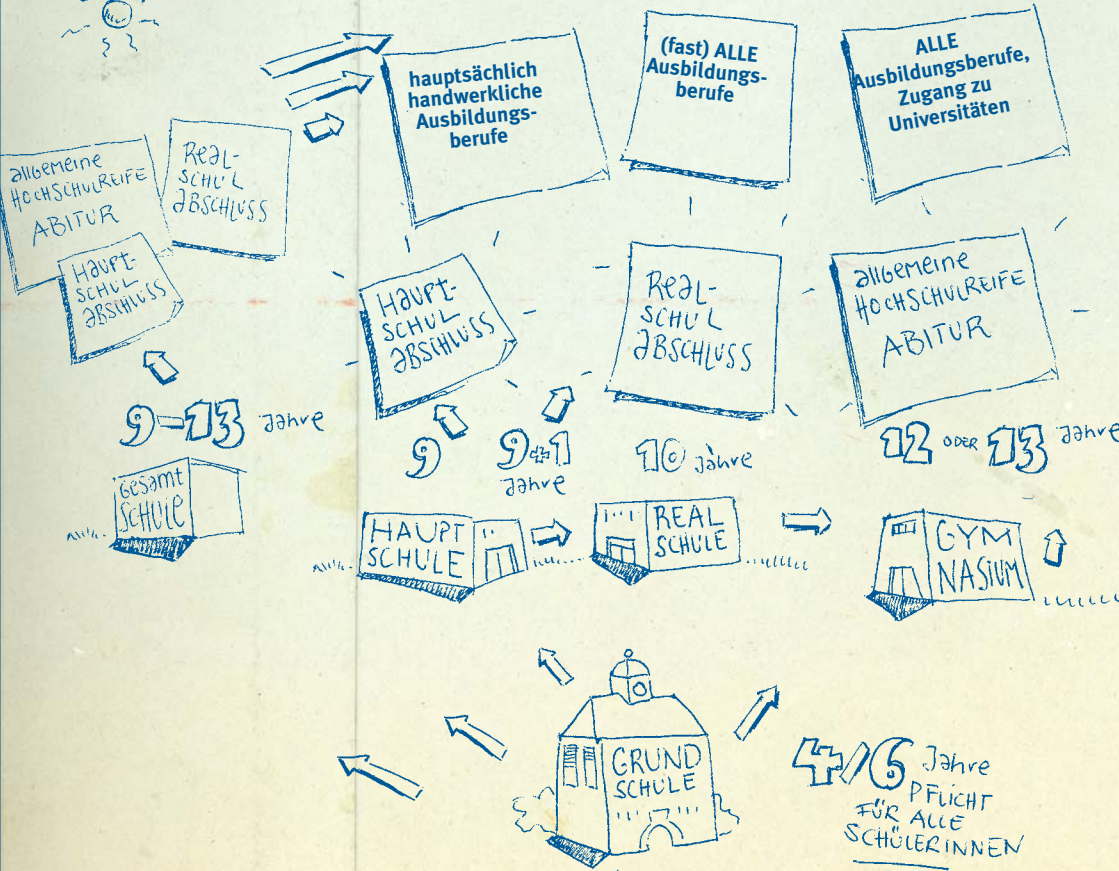 hauptsächlich
handwerkliche
Ausbildungs-
berufe
(fast) ALLE
Ausbildungs-
berufe
ALLE
Ausbildungsberufe,
Zugang zu
Universitäten
allgemeine
HOCHSCHULREIFE
ABITUR
REAL-
SCHUL
ABSCHLUSS
HAUPT-
SCHUL
ABSCHLUSS
HAUPT-
SCHUL
ABSCHLUSS
REAL-
SCHUL
ABSCHLUSS
allgemeine
HOCHSCHULREIFE
ABITUR
9-13 Jahre
9
9+1
Jahre
10 Jahre
12 ODER 13 Jahre
GESAMT
SCHULE
HAUPT
SCHULE
REAL
SCHULE
GYM
NASIUM
GRUND
SCHULE
4/6 Jahre
PFLICHT
FÜR ALLE
SCHÜLERINNEN